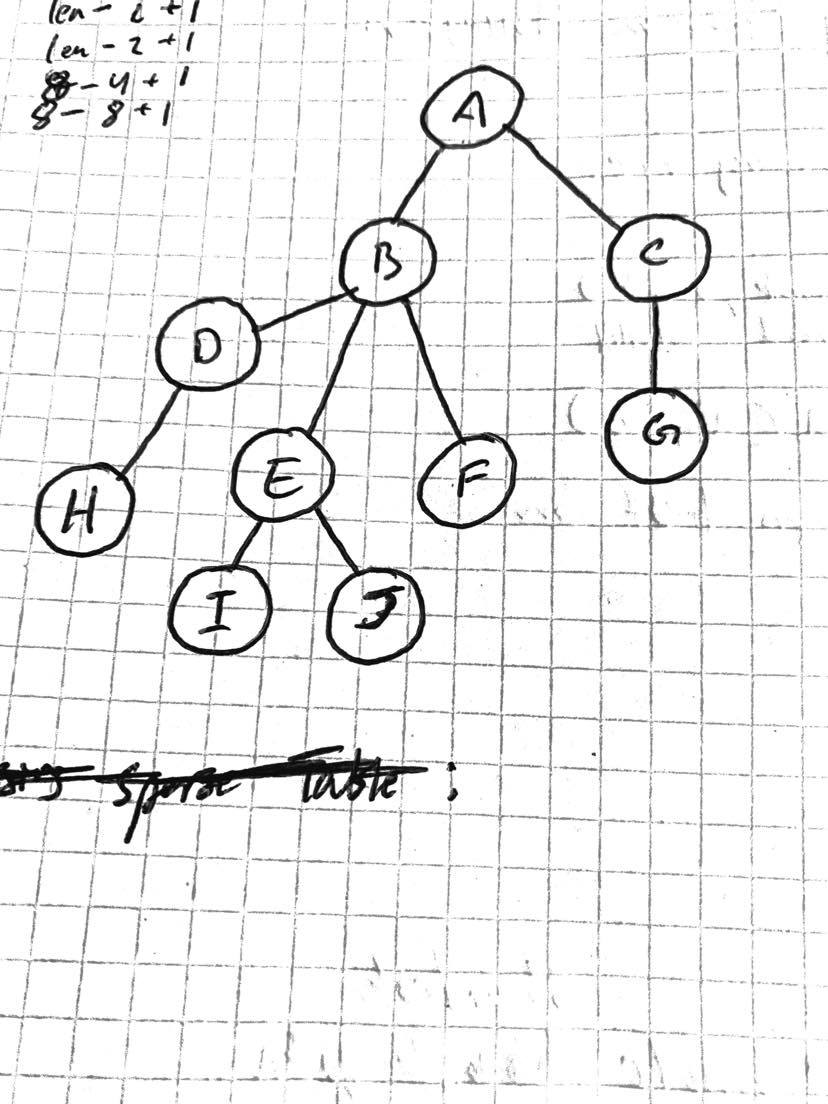 len - 2 + 1
len - 2 + 1
8 - 4 + 1
8 - 8 + 1
A
B
C
D
E
F
G
H
I
J
sparse Table :